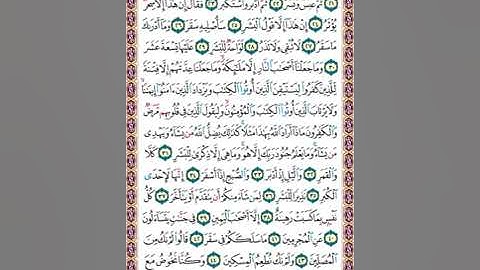 ٢١ ثُمَّ عَبَسَ وَبَسَرَ ٢٢ ثُمَّ أَدْبَرَ وَٱسْتَكْبَرَ ٢٣ فَقَالَ إِنْ هَٰذَآ إِلَّا سِحْرٌ
يُؤْثَرُ ٢٤ إِنْ هَٰذَآ إِلَّا قَوْلُ ٱلْبَشَرِ ٢٥ سَأُصْلِيهِ سَقَرَ ٢٦ وَمَآ أَدْرَىٰكَ
مَا سَقَرُ ٢٧ لَا تُبْقِى وَلَا تَذَرُ ٢٨ لَوَّاحَةٌ لِّلْبَشَرِ ٢٩ عَلَيْهَا تِسْعَةَ عَشَرَ
٣٠ وَمَا جَعَلْنَآ أَصْحَٰبَ ٱلنَّارِ إِلَّا مَلَٰٓئِكَةً وَمَا جَعَلْنَا عِدَّتَهُمْ إِلَّا فِتْنَةً
لِّلَّذِينَ كَفَرُوا۟ لِيَسْتَيْقِنَ ٱلَّذِينَ أُوتُوا۟ ٱلْكِتَٰبَ وَيَزْدَادَ ٱلَّذِينَ ءَامَنُوٓا۟ إِيمَٰنًا
وَلَا يَرْتَابَ ٱلَّذِينَ أُوتُوا۟ ٱلْكِتَٰبَ وَٱلْمُؤْمِنُونَ وَلِيَقُولَ ٱلَّذِينَ فِى قُلُوبِهِم مَّرَضٌ
وَٱلْكَٰفِرُونَ مَاذَآ أَرَادَ ٱللَّهُ بِهَٰذَا مَثَلًا كَذَٰلِكَ يُضِلُّ ٱللَّهُ مَن يَشَآءُ وَيَهْدِى
مَن يَشَآءُ وَمَا يَعْلَمُ جُنُودَ رَبِّكَ إِلَّا هُوَ وَمَا هِىَ إِلَّا ذِكْرَىٰ لِلْبَشَرِ ٣١ كَلَّا
وَٱلْقَمَرِ ٣٢ وَٱلَّيْلِ إِذْ أَدْبَرَ ٣٣ وَٱلصُّبْحِ إِذَآ أَسْفَرَ ٣٤ إِنَّهَا لَإِحْدَى
ٱلْكُبَرِ ٣٥ نَذِيرًا لِّلْبَشَرِ ٣٦ لِمَن شَآءَ مِنكُمْ أَن يَتَقَدَّمَ أَوْ يَتَأَخَّرَ ٣٧ كُلُّ
نَفْسٍۭ بِمَا كَسَبَتْ رَهِينَةٌ ٣٨ إِلَّآ أَصْحَٰبَ ٱلْيَمِينِ ٣٩ فِى جَنَّٰتٍ يَتَسَآءَلُونَ
٤٠ عَنِ ٱلْمُجْرِمِينَ ٤١ مَا سَلَكَكُمْ فِى سَقَرَ ٤٢ قَالُوا۟ لَمْ نَكُ مِنَ
ٱلْمُصَلِّينَ ٤٣ وَلَمْ نَكُ نُطْعِمُ ٱلْمِسْكِينَ ٤٤ وَكُنَّا نَخُوضُ مَعَ